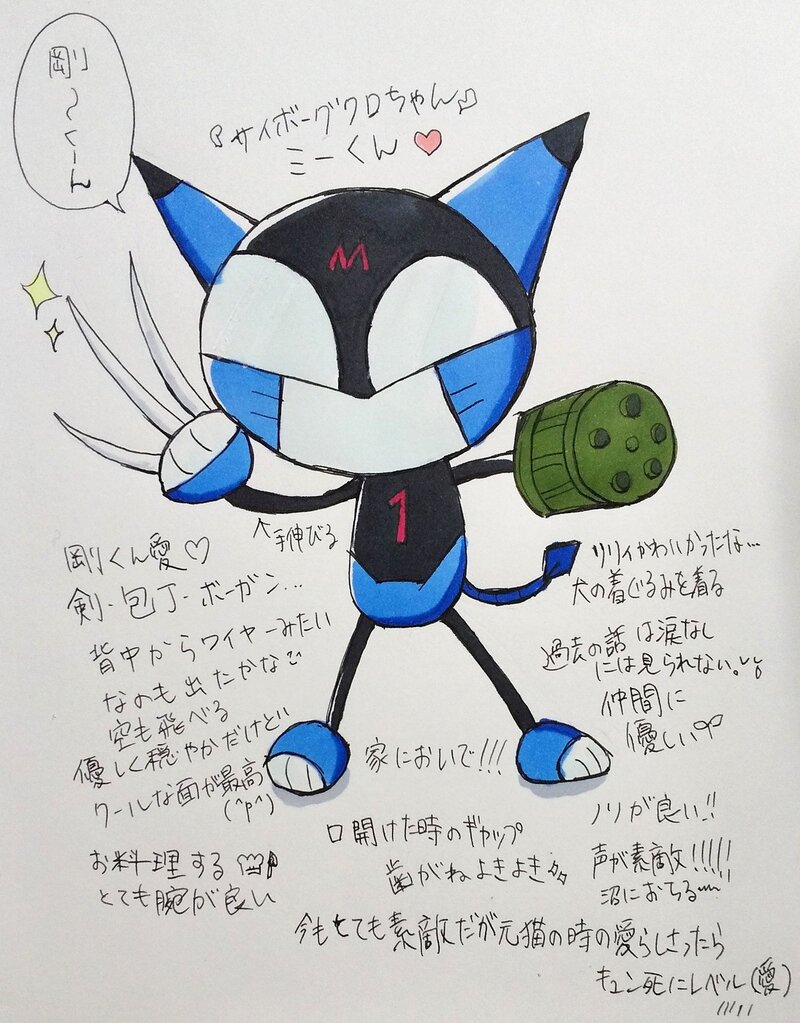 剛〜くーん
サイボーグクロちゃん
ミーくん♥
M
1
↖手伸びる
剛くん愛♡
剣・包丁・ボーガン...
背中からワイヤーみたい
なのも出たかな
空も飛べる
優しく穏やかだけど
クールな面が最高
(^p^)
お料理する
とても腕が良い
リリィかわいかったな...
犬の着ぐるみを着る
過去の話は涙なし
には見られない。
仲間に
優しい
家においで!!!
口開けた時のギャップ
歯がねよきよき
ノリが良い!!
声が素敵!!!!!
沼におちる〜
今もとても素敵だが元猫の時の愛らしさったら
キュン死にレベル(愛)